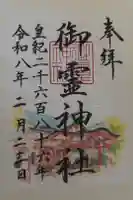 奉拝
御霊神社
皇紀二千六百八十六年
令和八年二月二十三日